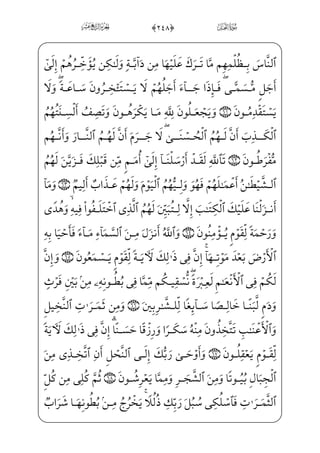 ٱلنَّاسَ بِظُلۡمِهِم مَّا تَرَكَ عَلَيۡهَا مِن دَآبَّةٖ وَلَٰكِن يُؤَخِّرُهُمۡ إِلَىٰٓ
أَجَلٖ مُّسَمّٗىۖ فَإِذَا جَآءَ أَجَلُهُمۡ لَا يَسۡتَـٔۡخِرُونَ سَاعَةٗ وَلَا
يَسۡتَقۡدِمُونَ ۝ وَيَجۡعَلُونَ لِلَّهِ مَا يَكۡرَهُونَۚ وَتَصِفُ أَلۡسِنَتُهُمُ
ٱلۡكَذِبَ أَنَّ لَهُمُ ٱلۡحُسۡنَىٰۖ لَا جَرَمَ أَنَّ لَهُمُ ٱلنَّارَ وَأَنَّهُم
مُّفۡرَطُونَ ۝ تَٱللَّهِ لَقَدۡ أَرۡسَلۡنَآ إِلَىٰٓ أُمَمٖ مِّن قَبۡلِكَ فَزَيَّنَ لَهُمُ
ٱلشَّيۡطَٰنُ أَعۡمَٰلَهُمۡ فَهُوَ وَلِيُّهُمُ ٱلۡيَوۡمَ وَلَهُمۡ عَذَابٌ أَلِيمٞ ۝ وَمَآ
أَنزَلۡنَا عَلَيۡكَ ٱلۡكِتَٰبَ إِلَّا لِتُبَيِّنَ لَهُمُ ٱلَّذِي ٱخۡتَلَفُواْ فِيهِ وَهُدٗى
وَرَحۡمَةٗ لِّقَوۡمٖ يُؤۡمِنُونَ ۝ وَٱللَّهُ أَنزَلَ مِنَ ٱلسَّمَآءِ مَآءٗ فَأَحۡيَا بِهِ
ٱلۡأَرۡضَ بَعۡدَ مَوۡتِهَآۚ إِنَّ فِي ذَٰلِكَ لَأٓيَةٗ لِّقَوۡمٖ يَسۡمَعُونَ ۝ وَإِنَّ
لَكُمۡ فِي ٱلۡأَنۡعَٰمِ لَعِبۡرَةٗۖ نُّسۡقِيكُم مِّمَّا فِي بُطُونِهِۦ مِنۢ بَيۡنِ فَرۡثٖ
وَدَمٖ لَّبَنًا خَالِصٗا سَآئِغٗا لِّلشَّٰرِبِينَ ۝ وَمِن ثَمَرَٰتِ ٱلنَّخِيلِ
وَٱلۡأَعۡنَٰبِ تَتَّخِذُونَ مِنۡهُ سَكَرٗا وَرِزۡقًا حَسَنًاۗ إِنَّ فِي ذَٰلِكَ لَأٓيَةٗ
لِّقَوۡمٖ يَعۡقِلُونَ ۝ وَأَوۡحَىٰ رَبُّكَ إِلَى ٱلنَّحۡلِ أَنِ ٱتَّخِذِي مِنَ
ٱلۡجِبَالِ بُيُوتٗا وَمِنَ ٱلشَّجَرِ وَمِمَّا يَعۡرِشُونَ ۝ ثُمَّ كُلِي مِن كُلِّ
ٱلثَّمَرَٰتِ فَٱسۡلُكِي سُبُلَ رَبِّكِ ذُلُلٗاۚ يَخۡرُجُ مِنۢ بُطُونِهَا شَرَابٞ